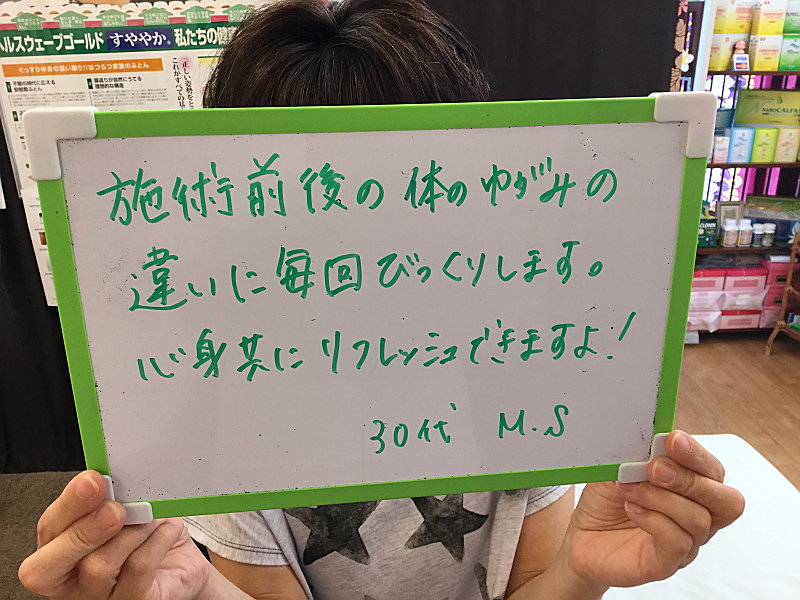 ヘルスウェーブゴールド すややか。 私たちの健
ぐっすり中身の違い眠り!!はつらつ家族のふとん
施術前後の体のゆがみの
違いに毎回びっくりします。
心身共にリフレッシュできますよ!
30代 M.S
VISA